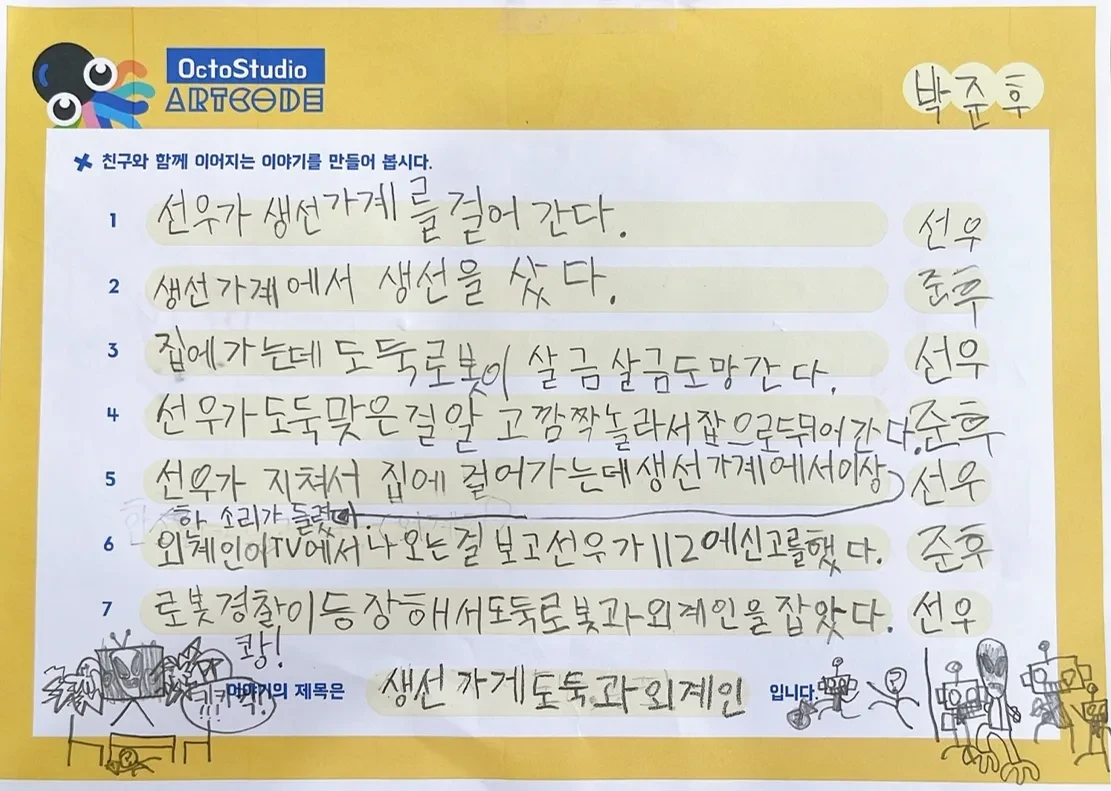 OctoStudio
ARTCODE
박준후
친구와 함께 이어지는 이야기를 만들어 봅시다.
1 선우가 생선가계를 걸어 간다. 선우
2 생선가계에서 생선을 샀다. 준후
3 집에가는데 도둑로봇이 살금살금도망간다. 선우
4 선우가도둑맞은걸알고 깜짝놀라서잡으로뛰어간다. 준후
5 선우가 지쳐서 집에 걸어가는데생선가계에서이상 선우
한 소리가 들렸다.
6 외계인이TV에서나오는걸보고선우가112에신고를했다. 준후
7 로봇경찰이등장해서도둑로봇과외계인을잡았다. 선우
쾅!
이야기의 제목은 생선가게도둑과외계인 입니다.